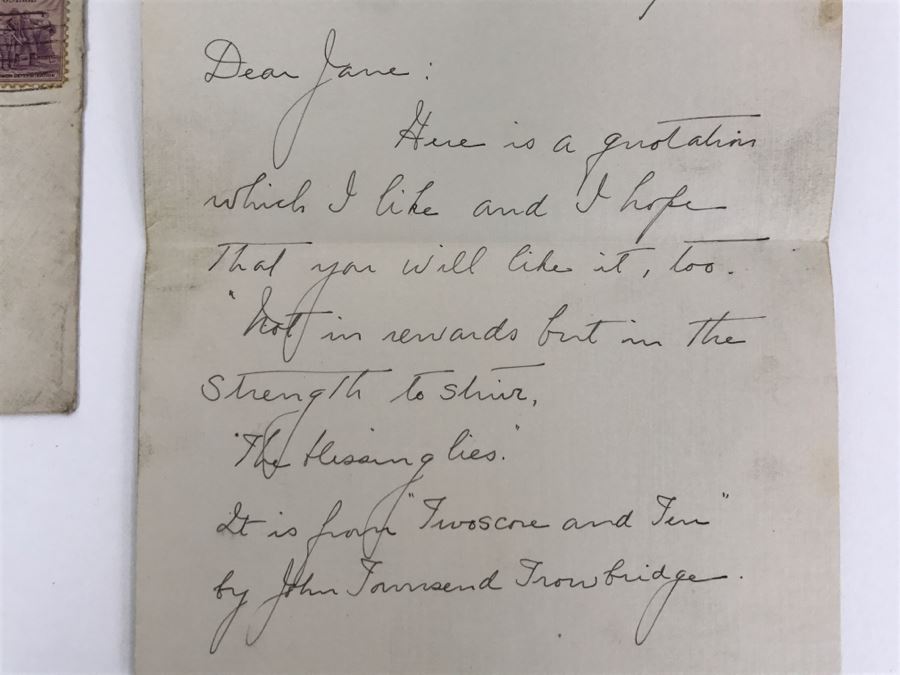 Dear Jane:
Here is a quotation
which I like and I hope
that you will like it, too.
"Not in rewards but in the
strength to strive,
"The blessing lies."
It is from "Twoscore and Ten"
by John Townsend Trowbridge.